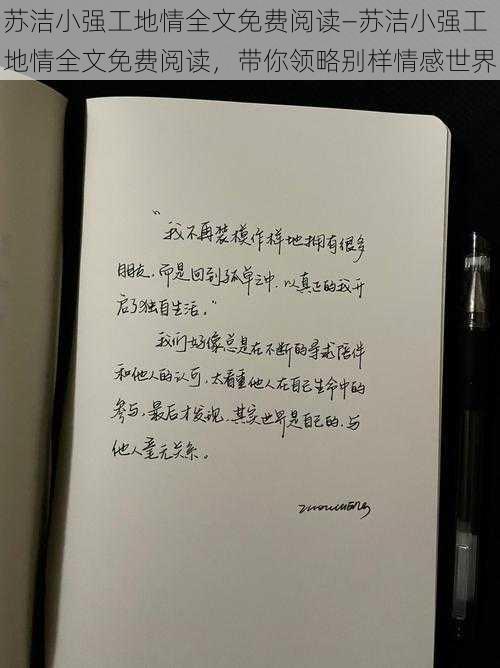 苏洁小强工地情全文免费阅读—苏洁小强工
地情全文免费阅读，带你领略别样情感世界
“我不再装模作样地拥有很多
朋友，而是回到孤单之中，以真正的我开
启了独自生活。”
我们好像总是在不断的寻求陪伴
和他人的认可，太看重他人在自己生命中的
参与，最后才发现，其实世界是自己的，与
他人毫无关系。